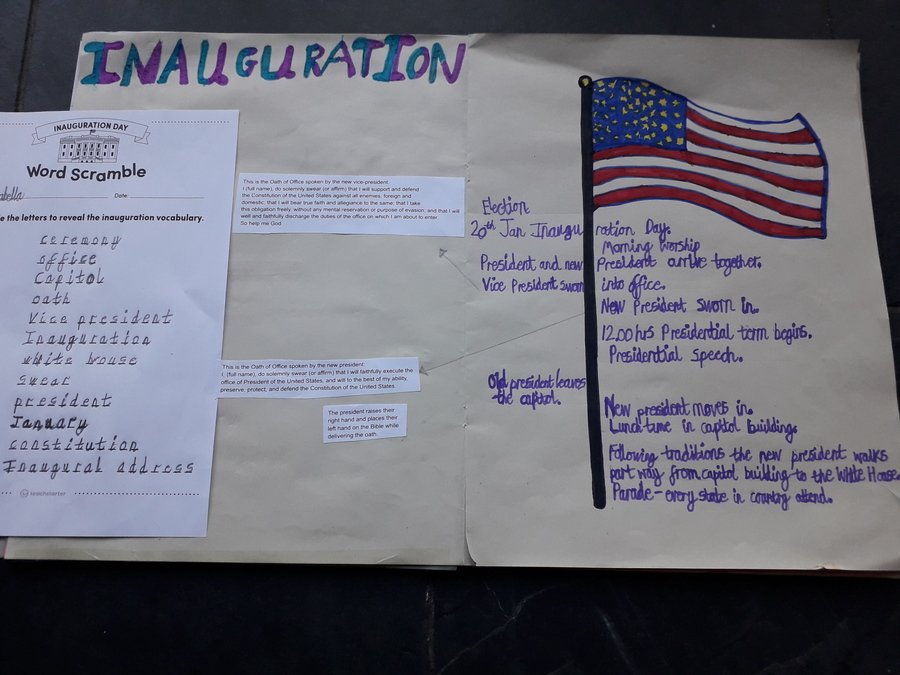 INAUGURATION
INAUGURATION DAY
Word Scramble
Date:
the letters to reveal the inauguration vocabulary.
ceremony
office
Capitol
oath
Vice president
Inauguration
white house
swear
president
January
constitution
Inaugural address
teachstarter
This is the Oath of Office spoken by the new vice-president.
I (full name), do solemnly swear (or affirm) that I will support and defend
the Constitution of the United States against all enemies, foreign and
domestic; that I will bear true faith and allegiance to the same; that I take
this obligation freely, without any mental reservation or purpose of evasion; and that I will
well and faithfully discharge the duties of the office on which I am about to enter.
So help me God.
This is the Oath of Office spoken by the new president.
I, (full name), do solemnly swear (or affirm) that I will faithfully execute the
office of President of the United States, and will to the best of my ability,
preserve, protect, and defend the Constitution of the United States.
The president raises their
right hand and places their
left hand on the Bible while
delivering the oath.
Election
20th Jan Inauguration Day.
Morning worship
President and new President arrive together.
Vice President sworn into office.
New President sworn in.
12.00hrs Presidential term begins.
Presidential speech.
Old president leaves
the capitol.
New president moves in.
Lunch time in capitol building.
Following traditions the new president walks
part way from capitol building to the White House.
Parade - every state in country attend.